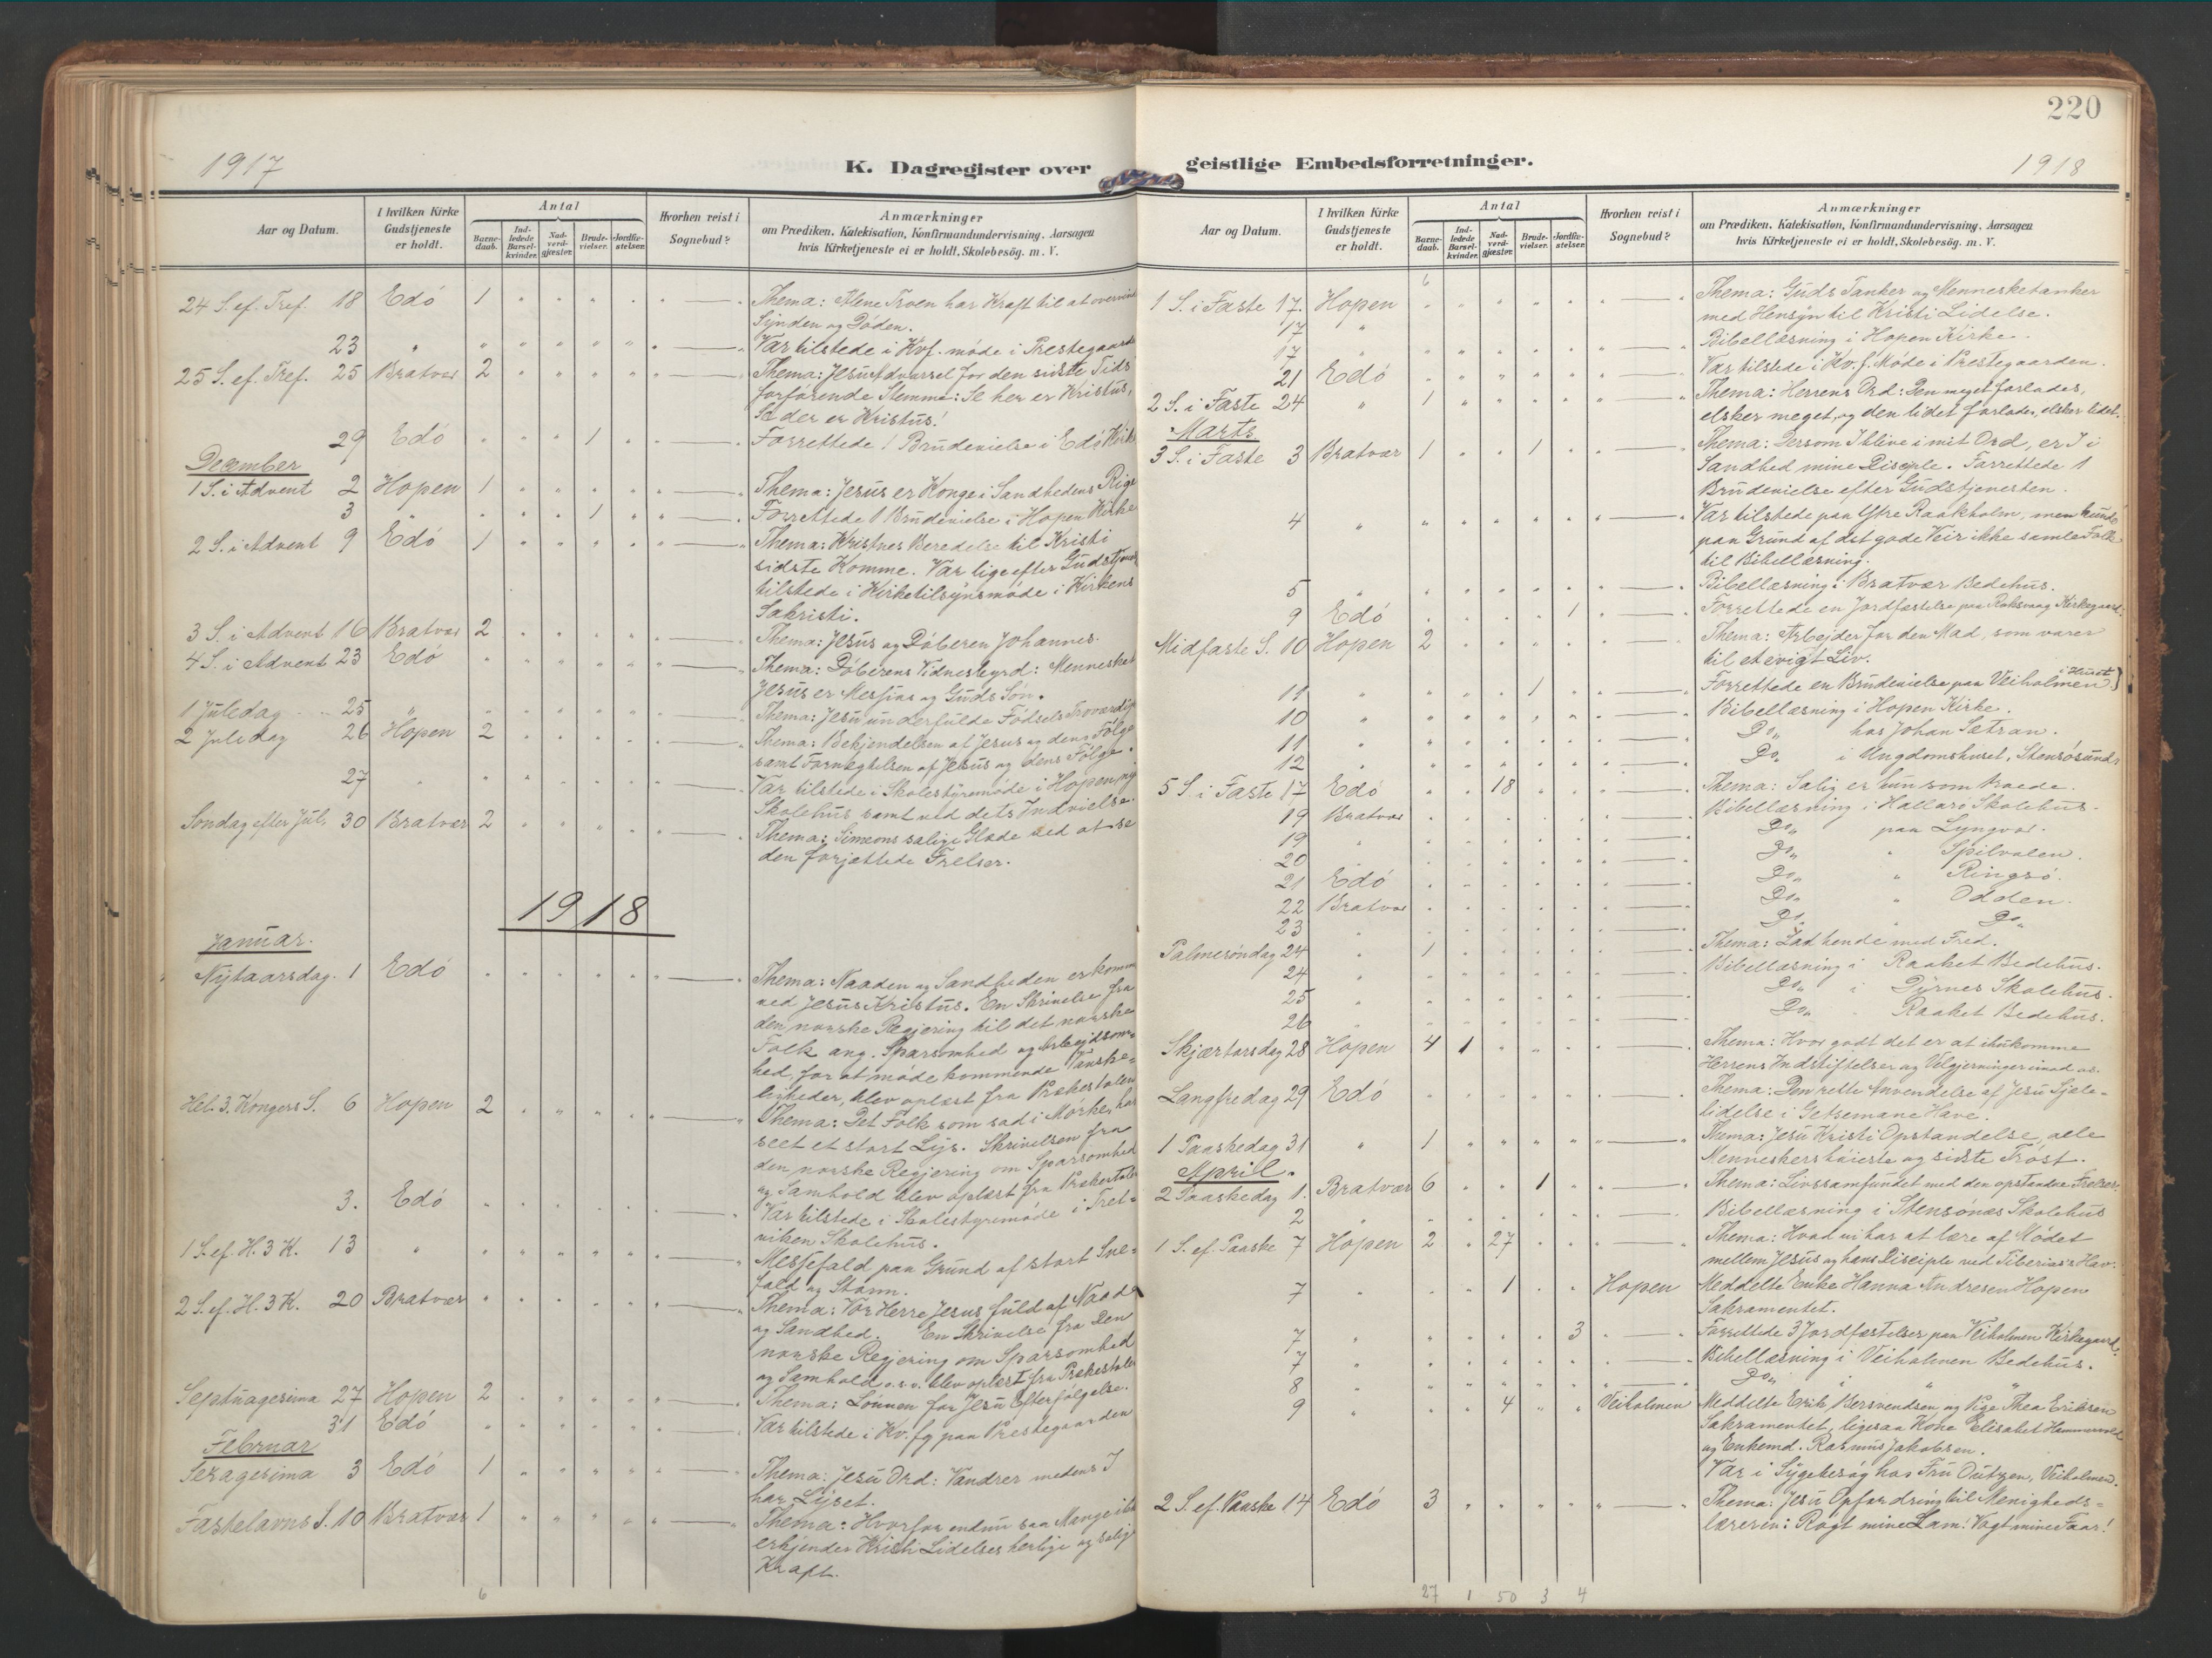 1917
K. Dagregister over
Aar og Datum.
I hvilken Kirke Gudstjeneste er holdt.
Antal
Barnedaab.
Indledede Barselkvinder.
Nadverdgjæster.
Brudevielser.
Jordfæstelser.
Hvorhen reist i Sognebud?
Anmærkninger
om Prædiken, Katekisation, Konfirmandundervisning, Aarsagen
hvis Kirketjeneste ei er holdt, Skolebesög. m. V.
24 S. ef. Tref. 18 Edö 1 Thema: Alene Troen har Kraft til at overvinde
Synden og Döden.
23 " Var tilstede i Kvf. möde i Prestegaarden
25 S. ef. Tref. 25 Bratvær 2 Thema: Jesu Advarsel for den sidste Tids
forförende Stemme: Se her er Kristus,
Se der er Kristus!
29 Edö 1 Forrettede 1 Brudevielse i Edö Kirke
December
1 S. i Advent 2 Hopen 1 Thema: Jesus er Konge i Sandhedens Rige
3 " 1 Forrettede 1 Brudevielse i Hopen Kirke
2 S. i Advent 9 Edö 1 Thema: Kristnes Beredelse til Kristi
sidste Komme. Var lige efter Gudstjen
tilstede i Kirketilsynsmöde i Kirkens
Sakristi.
3 S. i Advent 16 Bratvær 2 Thema: Jesus og Döberen Johannes.
4 S. i Advent 23 Edö Thema: Döberens Vidnesbyrd: Mennesket
Jesus er Messias og Guds Sön.
1 Juledag 25 " Thema: Jesu underfulde Födsels Troværdig
2 Juledag 26 Hopen 2 Thema: Bekjendelsen af Jesus og dens Fölge
samt Fornegtelsen af Jesus og dens Fölge.
27 " Var tilstede i Skolestyremöde i Hopen ny
Skolehus samt ved dets Indvielse.
Söndag efter Jul. 30 Bratvær 2 Thema: Simeons salige Glæde ved at se
den forjættede Frelser.
1918
Januar.
Nytaarsdag. 1 Edö Thema: Naaden og Sandheden er komme
ved Jesus Kristus. En Skrivelse fra
den norske Regjering til det norske
Folk ang. Sparsomhed og Arbeidsom-
hed, for at möde kommende Vanske-
ligheder, blev oplæst fra Prækestolen
Hel. 3. Kongers S. 6 Hopen 2 Thema: Det Folk som sad i Mörke, har
seet et stort Lys. Skrivelsen fra
den norske Regjering om Sparsomhed
og Samhold blev oplæst fra Prækestolen
3. Edö Var tilstede i Skolestyremöde i Tret-
viken Skolehus.
1 S. ef. H. 3 K. 13 " Messefald paa Grund af stort Sne-
fald og Storm.
2 S. ef. H. 3 K. 20 Bratvær Thema: Vor Herre Jesus fuld af Naade
og Sandhed. En Skrivelse fra Den
norske Regjering om Sparsomhed
og Samhold o.s.v. blev oplæst fra Prækestolen
Septuagesima 27 Hopen 2 Thema: Lönnen for Jesu Efterfölgelse.
31 Edö Var tilstede i Kv. fg paa Prestegaarden
Februar
Sexagesima 3 Edö 1 Thema: Jesu Ord: Vandrer medens I
har Lyset.
Fastelavns S. 10 Bratvær 1 Thema: Hvorfor endnu saa Mange ikke
erkjender Kristi Lidelses herlige og salige
Kraft.
6
220
geistlige Embedsforretninger.
1918
Aar og Datum.
I hvilken Kirke Gudstjeneste er holdt.
Antal
Barnedaab.
Indledede Barselkvinder.
Nadverdgjæster.
Brudevielser.
Jordfæstelser.
Hvorhen reist i Sognebud?
Anmærkninger
om Prædiken, Katekisation, Konfirmandundervisning, Aarsagen
hvis Kirketjeneste ei er holdt, Skolebesög. m. V.
6
1 S. i Faste 17. Hopen Thema: Guds Tanker og Mennesketanker
med Hensyn til Kristi Lidelse.
17 " Bibellæsning i Hopen Kirke.
17 "
21 Edö Var tilstede i Kv. f. Möde i Prestegaarden.
2 S. i Faste 24 " 1 Thema: Herrens Ord: Den meget forlades,
elsker meget, og den lidet forlades, elsker lidet.
Marts
3 S. i Faste 3 Bratvær 1 1 Thema: Dersom I blive i mit Ord, er I i
Sandhed mine Disciple. Forrettede 1
Brudevielse efter Gudstjenesten.
4 " Var tilstede paa Ytre Raakholm, men kunde
paa Grund af det gode Veir ikke samle Folk
til Bibellæsning.
5 " Bibellæsning i Bratvær Bedehus.
9 Edö 1 Forrettede en Jordfæstelse paa Roksvaag Kirkegaard.
Midfaste S. 10 Hopen 2 Thema: Arbejder for den Mad, som varer
til et evigt Liv.
11 " 1 Forrettede en Brudevielse paa Veiholmen i Huset
10 " Bibellæsning i Hopen Kirke.
11 " Do. hos Johan Sætran.
12 " Do. i Ungdomshuset, Stensösund.
5 S. i Faste 17 Edö 18 Thema: Salig er hun som troede.
19 Bratvær Bibellæsning i Hallarö Skolehus.
19 " Do. paa Lyngvær.
20 " Do. " Spilvalen.
21 Edö Do. " Ringsö.
22 Bratvær Do. " Odden.
23 " Do. " Do.
Palmesöndag 24 " 1 Thema: Lad hende med Fred.
24 " Bibellæsning i Raaket Bedehus.
25 " Do. i Dyrnes Skolehus.
26 " Do. Raaket Bedehus.
Skjærtorsdag 28 Hopen 4 1 Thema: Hvor godt det er at ihukomme
Herrens Indstiftelser og Velgjerninger imod os.
Langfredag 29 Edö Thema: Den rette Anvendelse af Jesu Sjele-
lidelse i Getsemane Have.
1 Paaskedag 31 " 1 Thema: Jesu Kristi Opstandelse, alle
Menneskers höieste og sidste Tröst.
April.
2 Paaskedag 1. Bratvær 6 1 Thema: Livssamfundet med den opstandne Frelser.
2 " Bibellæsning i Stensönæs Skolehus
1 S. ef. Paaske 7 Hopen 2 27 Thema: Hvad vi har at lære af Mödet
mellem Jesus og hans Disciple ved Tiberias's Hav.
7 " 1 Hopen Meddelte Enke Hanna Andresen Hopen
Sakramentet.
7 " 3 Forrettede 3 Jordfæstelser paa Veiholmen Kirkegaard.
7 " Bibellæsning i Veiholmen Bedehus.
8 " Do. " "
9 " 4 Veiholmen Meddelte Erik Bersvendsen og Pige Thea Eriksen
Sakramentet, ligesaa Kone Elisabet Hammervold
og Enkemd. Rasmus Jakobsen.
Var i Sygebesög hos Fru Outzen, Veiholmen.
2 S. ef. Paaske 14 Edö 3 Thema: Jesu Opfordring til Menigheds-
læreren: Rögt mine Lam! Vogt mine Faar!
27 1 50 3 4